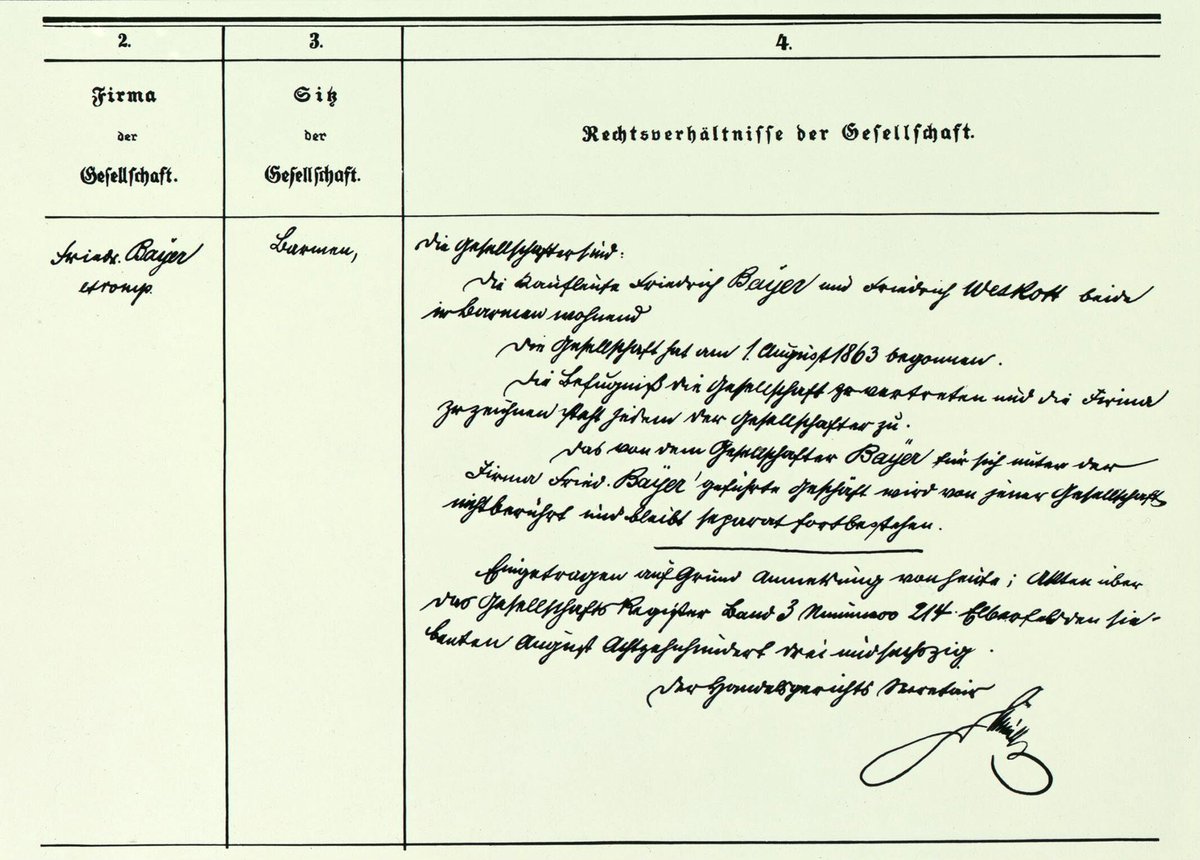 2.
3.
4.
Firma
der
Gesellschaft.
Sitz
der
Gesellschaft.
Rechtsverhältnisse der Gesellschaft.
Friedr. Bayer
et comp.
Barmen,
Die Gesellschafter sind:
Die Kaufleute Friedrich Bayer und Friedrich Weskott beide
in Barmen wohnend
Die Gesellschaft hat am 1. August 1863 begonnen.
Die Befugniß die Gesellschaft zu vertreten und die Firma
zu zeichnen steht jedem der Gesellschafter zu.
Das von dem Gesellschafter Bayer für sich unter der
Firma Fried. Bayer geführte Geschäft wird von jener Gesellschaft
nicht berührt und bleibt separat fortbestehen.
Eingetragen auf Grund Anmeldung von heute; Akten über
das Gesellschafts Register Band 3 Nummero 214. Elberfeld den sie-
benten August Achtzehnhundert drei und sechszig.
Der Handelsgerichts Secretair